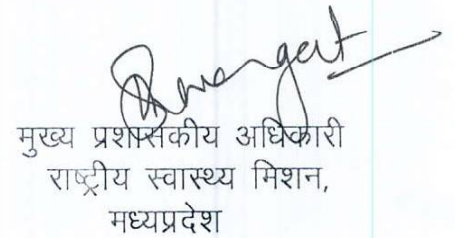 मुख्य प्रशासकीय अधिकारी
राष्ट्रीय स्वास्थ्य मिशन,
मध्यप्रदेश